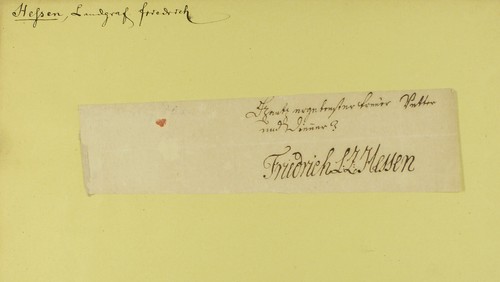 Hessen, Landgraf Friedrich
ergebenster treüer Vetter
und Diener
Fridrich L Z Hessen